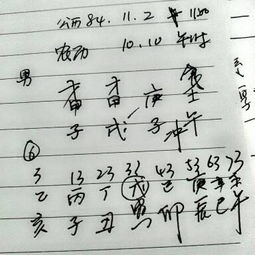 公历84.11.2 11:00
农历 10.10 午时
男
甲 甲 庚 壬
子 戌 子 午
⑥
3 13 23 33 43 53 63 73
乙 丙 丁 戊 己 庚 辛
亥 子 丑 寅 卯 辰 巳 午